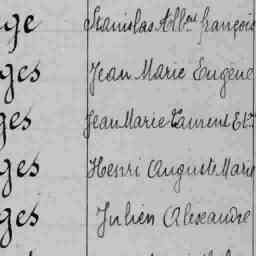 ge Stanislas Albert françois
ges Jean Marie Eugène
ges Jean Marie Laurent Et.
ges Henri Auguste Marie
ges Julien Alexandre